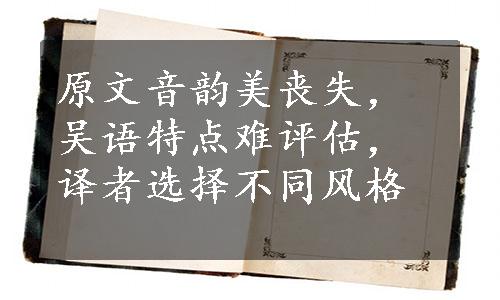 原文音韵美丧失，
吴语特点难评估，
译者选择不同风格